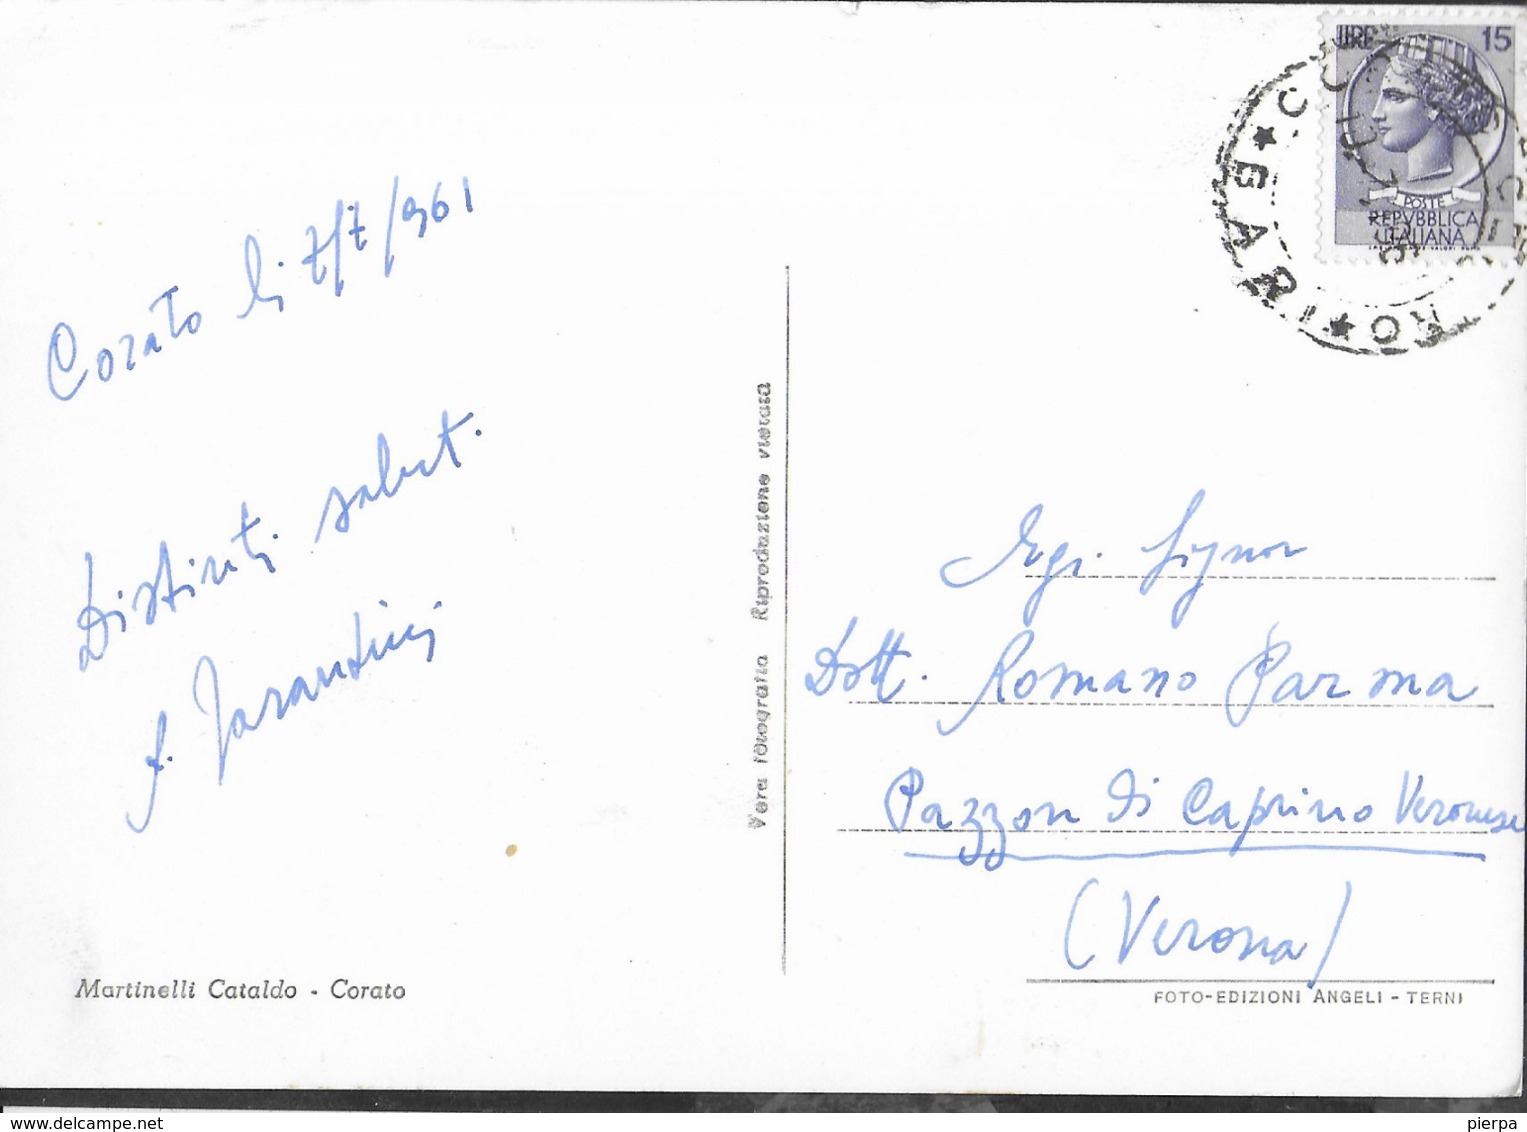 Corato li 7/7/961
Distinti salut.
Martinelli Cataldo - Corato
Vera fotografia Riproduzione vietata
LIRE 15
POSTE
REPVBBLICA
ITALIANA
BARI
Egr. Signor
Dott. Romano Parma
Pazzon di Caprino Veronese
(Verona)
FOTO-EDIZIONI ANGELI - TERNI
delcampe.net
pierpa